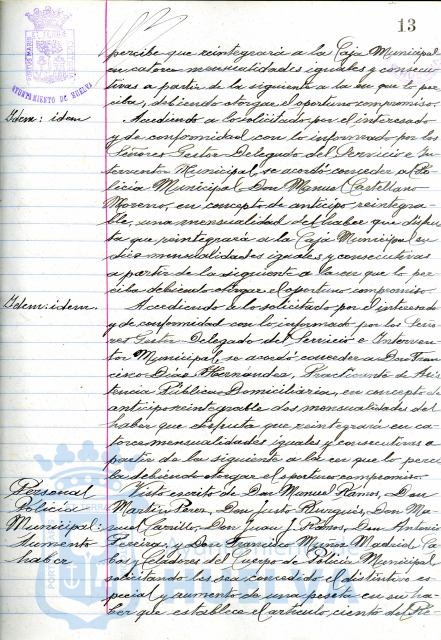 13
AYUNTAMIENTO DE HUELVA
percibe que reintegrará a la Caja Municipal
en catorce mensualidades iguales y consecu-
tivas a partir de la siguiente a la en que lo per-
ciba, debiendo otorgar el oportuno compromiso.
Idem: idem
Accediendo a lo solicitado por el interesado
y de conformidad con lo informado por los
Señores Gestor Delegado del Servicio e In-
terventor Municipal, se acordó conceder al Po-
licia Municipal Don Manuel Castellano
Moreno, en concepto de anticipo reintegra-
ble, una mensualidad del haber que disfru-
ta que reintegrará a la Caja Municipal en
diez mensualidades iguales y consecutivas
a partir de la siguiente a la en que lo per-
ciba debiendo otorgar el oportuno compromiso.
Idem: idem.
Accediendo a lo solicitado por el interesado
y de conformidad con lo informado por los Seño-
res Gestor Delegado del Servicio e Interven-
tor Municipal se acordó conceder a Don Fran-
cisco Díaz Hernández, Practicante de Asis-
tencia Pública Domiciliaria, en concepto de
anticipo reintegrable dos mensualidades del
haber que disfruta que reintegrará en ca-
torce mensualidades iguales y consecutivas a
partir de la siguiente a la en que lo perci-
ba debiendo otorgar el oportuno compromiso.
Personal
Policía
Municipal:
Aumento
haber
Visto escrito de Don Manuel Ramos, Don
Martín Pérez, Don Justo Burgués, Don Ma-
nuel Carrillo, Don Juan J. Franco, Don Antonio
Pereira y Don Francisco Muñoz Madrid Ca-
bos y Celadores del Cuerpo de Policía Municipal
solicitando les sea concedido el distintivo es-
pecial y aumento de una peseta en su ha-
ber que establece el artículo ciento del